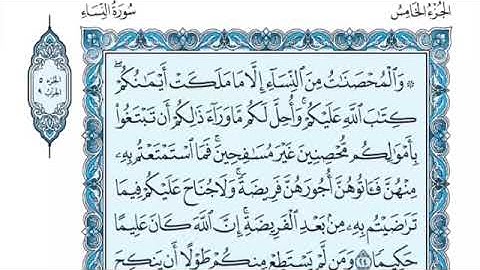 سُورَةُ النِّسَاءِ
الجُزْءُ الخَامِسُ
الجزء ٥
الحزب ٩
۞ وَالْمُحْصَنَٰتُ مِنَ النِّسَاءِ إِلَّا مَا مَلَكَتْ أَيْمَٰنُكُمْ ۖ
كِتَٰبَ اللَّهِ عَلَيْكُمْ ۚ وَأُحِلَّ لَكُم مَّا وَرَاءَ ذَٰلِكُمْ أَن تَبْتَغُوا
بِأَمْوَٰلِكُم مُّحْصِنِينَ غَيْرَ مُسَٰفِحِينَ ۚ فَمَا اسْتَمْتَعْتُم بِهِۦ
مِنْهُنَّ فَـَٔاتُوهُنَّ أُجُورَهُنَّ فَرِيضَةً ۚ وَلَا جُنَاحَ عَلَيْكُمْ فِيمَا
تَرَٰضَيْتُم بِهِۦ مِنۢ بَعْدِ الْفَرِيضَةِ ۚ إِنَّ اللَّهَ كَانَ عَلِيمًا
حَكِيمًا ٢٤ وَمَن لَّمْ يَسْتَطِعْ مِنكُمْ طَوْلًا أَن يَنكِحَ